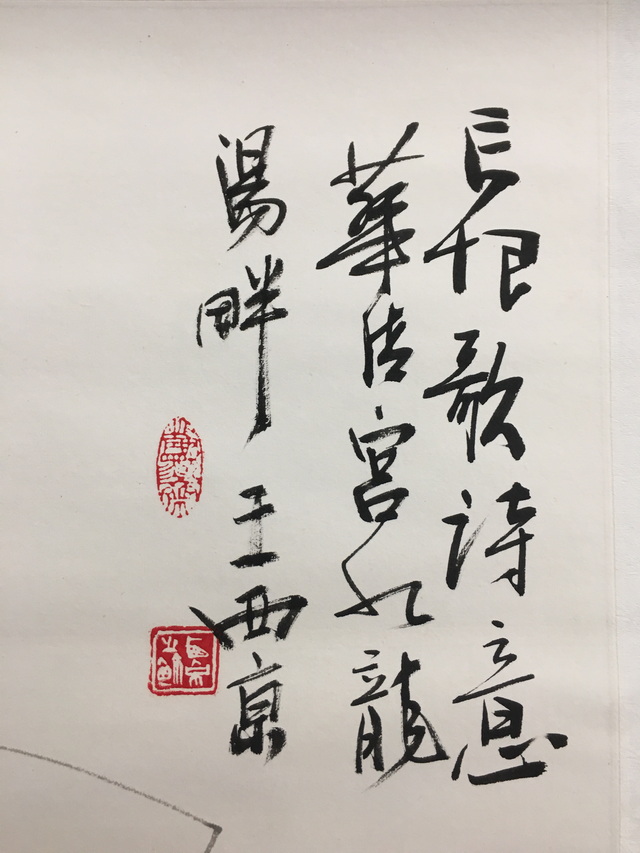 長恨歌詩意
華清宮九龍
湯畔 王西京